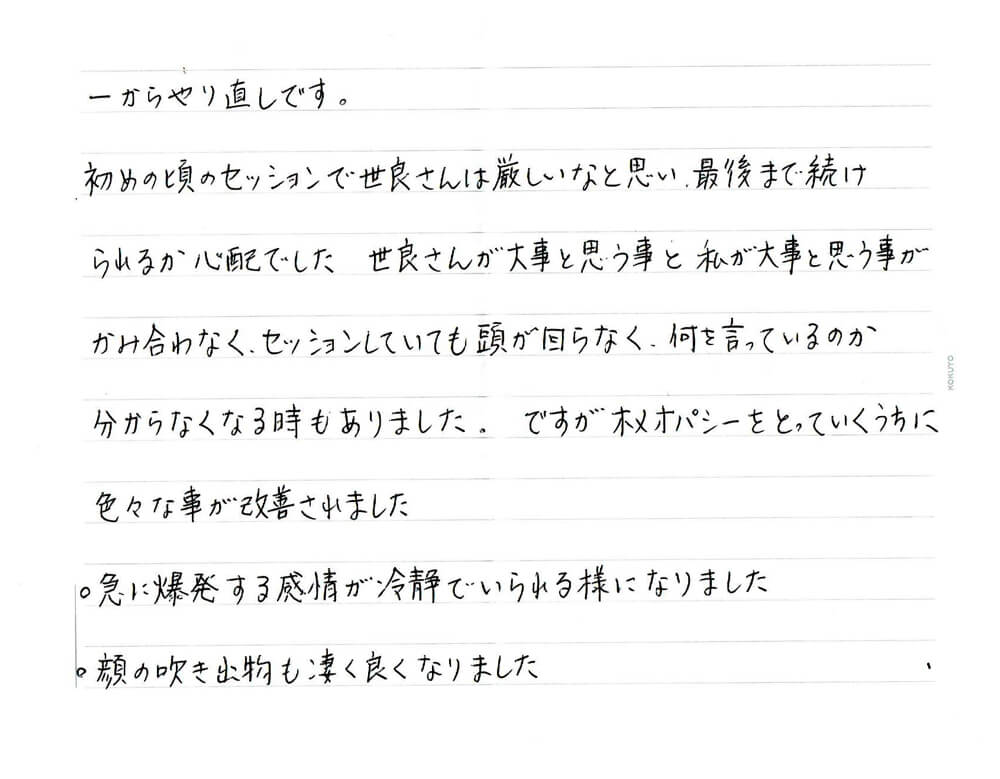 一からやり直しです。
初めの頃のセッションで世良さんは厳しいなと思い、最後まで続け
られるか心配でした　世良さんが大事と思う事と私が大事と思う事が
かみ合わなく、セッションしていても頭が回らなく、何を言っているのか
分からなくなる時もありました。　ですがホメオパシーをとっていくうちに
色々な事が改善されました
○急に爆発する感情が冷静でいられる様になりました
○顔の吹き出物も凄く良くなりました
KOKUYO